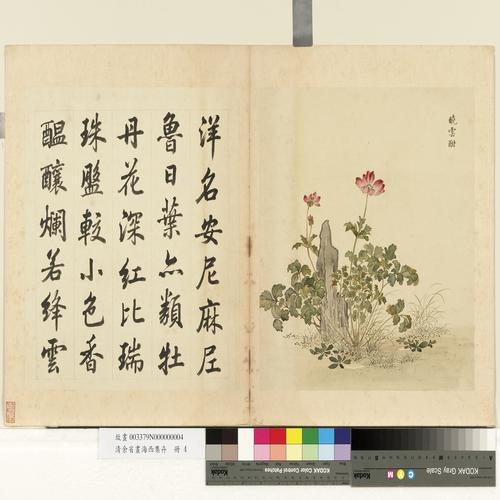 洋名安尼麻尼
魯日葉亦類牡
丹花深紅比瑞
珠盤較小色香
醞釀爛若絳雲
曉雲酣
故畫 003379N000000004
清余省畫海西集卉 冊 4
KODAK Color Control Patches
Kodak
KODAK Gray Scale
C
Y
M
Kodak